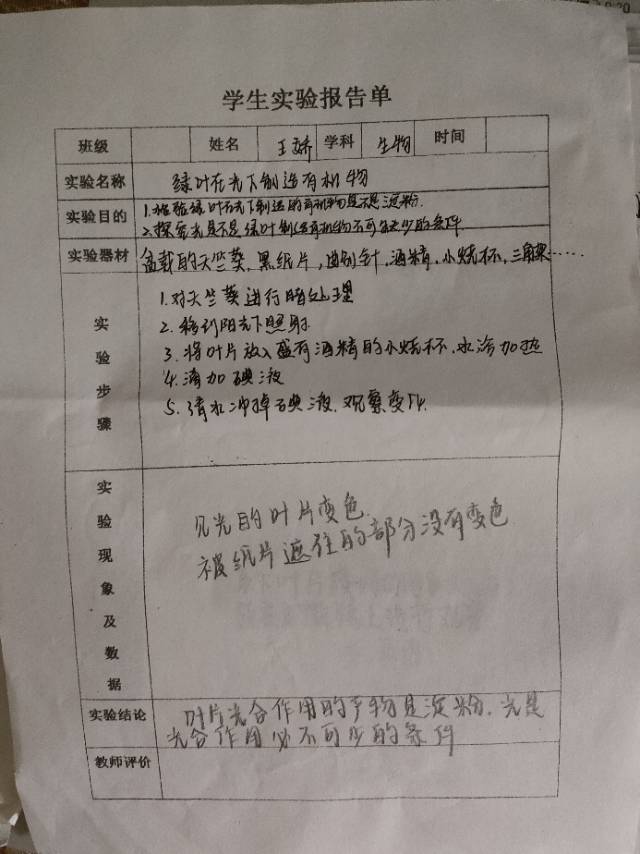 学生实验报告单
班级 姓名 王娇 学科 生物 时间
实验名称 绿叶在光下制造有机物
实验目的 1.检验绿叶在光下制造的有机物是不是淀粉.
2.探究光是不是绿叶制造有机物不可缺少的条件
实验器材 盆栽的天竺葵,黑纸片,曲别针,酒精,小烧杯,三角架……
实验步骤
1.对天竺葵进行暗处理
2.移到阳光下照射
3.将叶片放入盛有酒精的小烧杯,水浴加热
4.滴加碘液
5.清水冲掉碘液,观察变化.
实验现象及数据
见光的叶片变色.
被纸片遮住的部分没有变色
实验结论 叶片光合作用的产物是淀粉.光是
光合作用必不可少的条件
教师评价